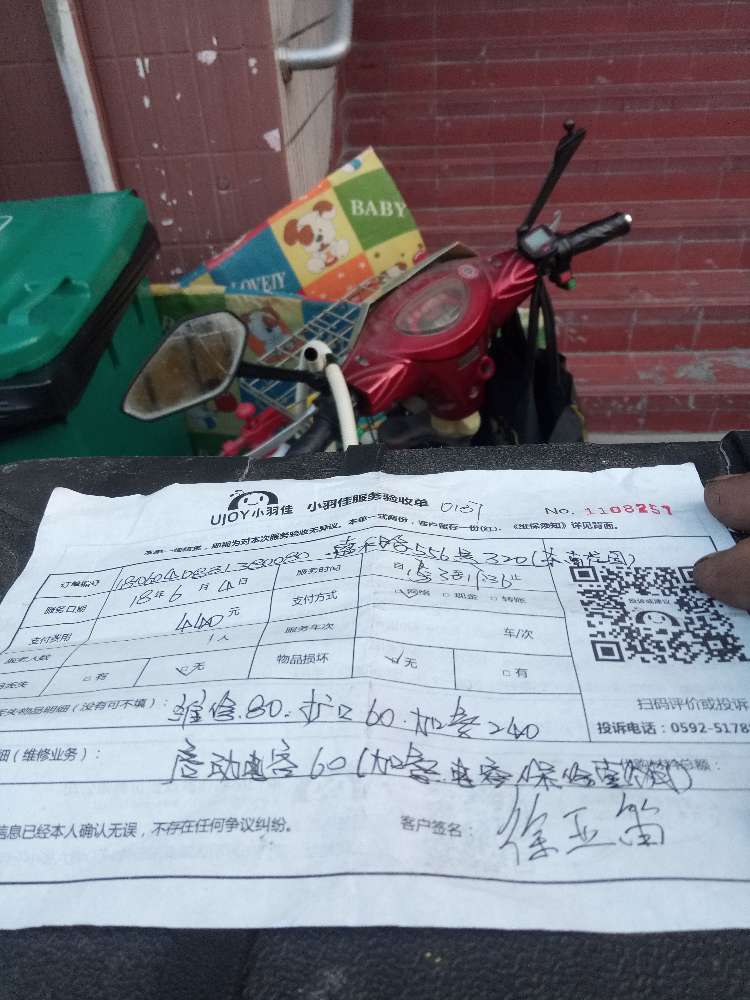 BABY
LOVELY
UJOY小羽佳 小羽佳服务验收单 0137
No. 1108251
本单一经结束，即视为对本次服务验收无异议。本单一式两份，客户留存一份(红)。《维保须知》详见背面。
订单编号
服务日期 18年6月4日 服务时间
支付费用 440元 支付方式 网络 □现金 □转账
服务人数 1人 服务车次 车/次
□有 无 物品损坏 无 □有
扫码评价或投诉
物品明细（没有可不填）： 维修.80.扩口60.加氨240
投诉电话：0592-5178
细（维修业务）： 启动电容60(加氨.电容.保修
信息已经本人确认无误，不存在任何争议纠纷。 客户签名： 徐亚笛